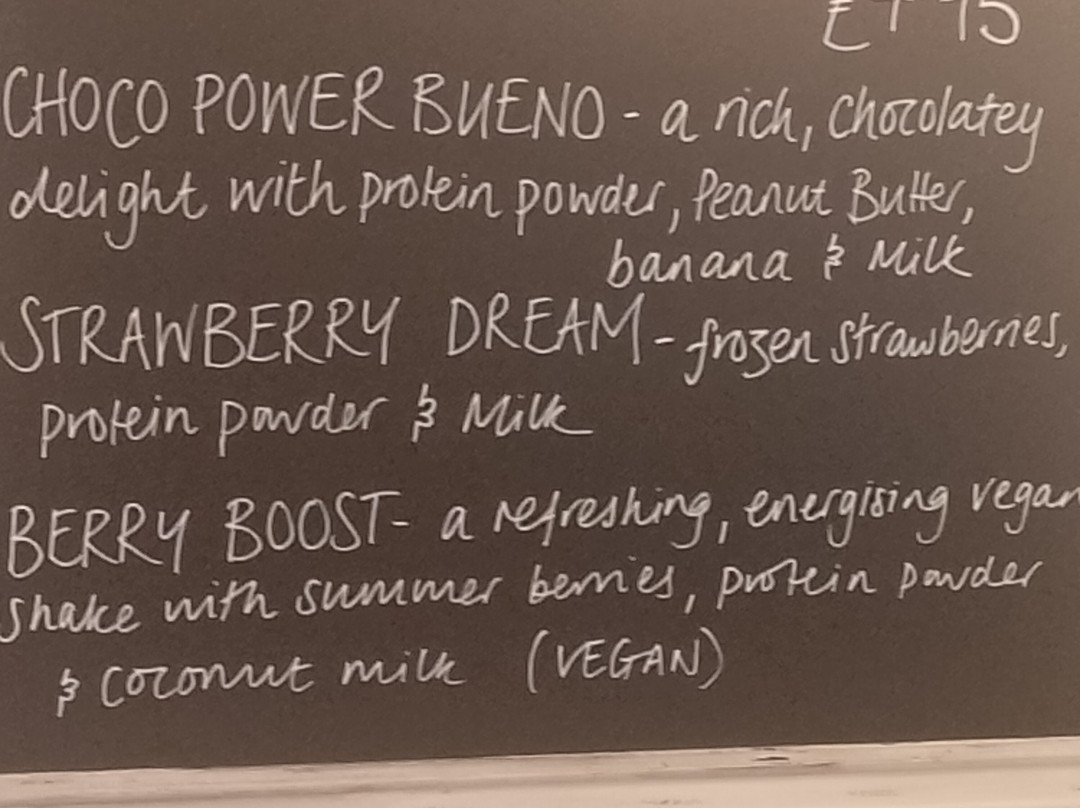 CHOCO POWER BUENO - a rich, chocolatey
delight with protein powder, Peanut Butter,
banana & Milk
STRAWBERRY DREAM - frozen strawberries,
protein powder & Milk
BERRY BOOST - a refreshing, energising vegan
shake with summer berries, protein powder
& coconut milk (VEGAN)